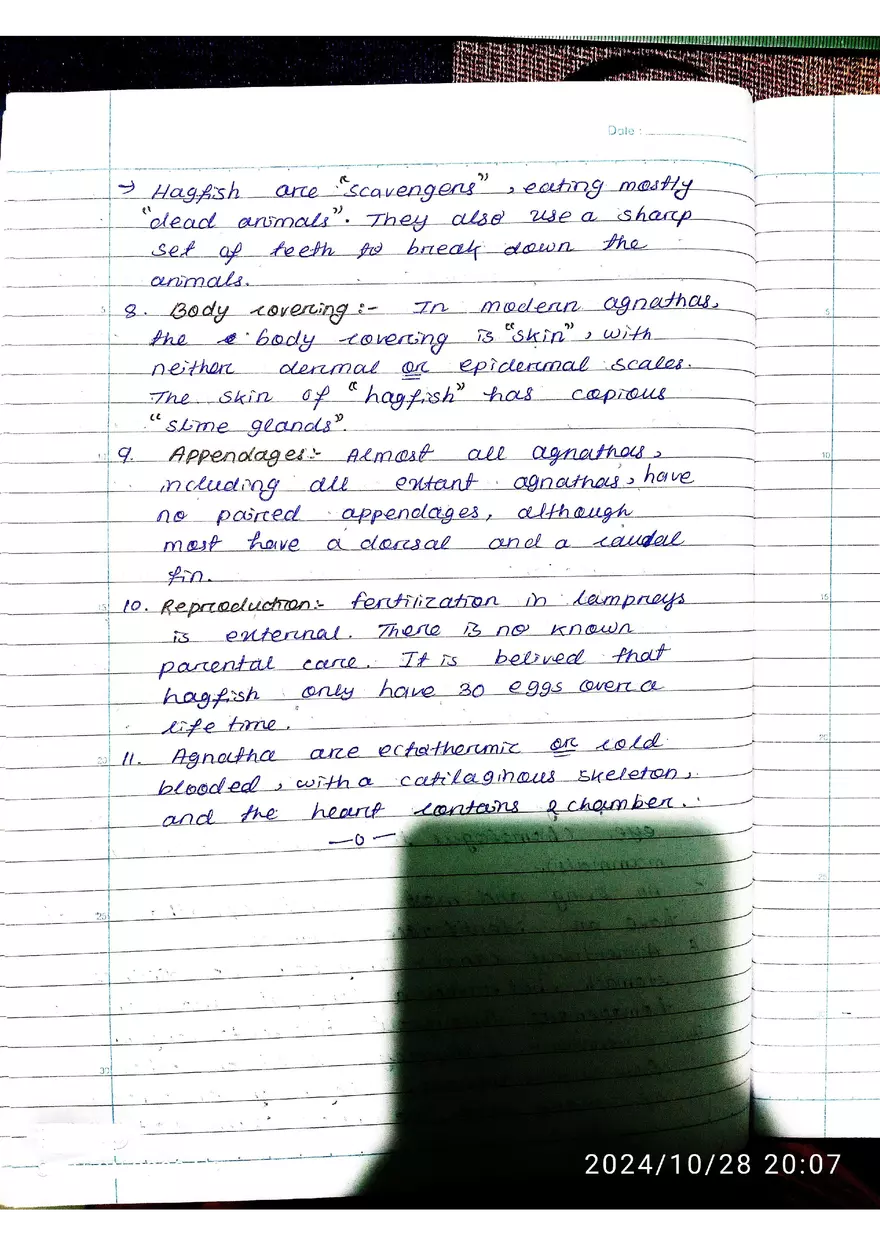 Date :
→ Hagfish are "scavengers", eating mostly
"dead animals". They also use a sharp
set of teeth to break down the
animals.
8. Body covering :- In modern agnathas,
the body covering is "skin", with
neither dermal or epidermal scales.
The skin of "hagfish" has copious
"slime glands".
9. Appendages:- Almost all agnathas,
including all extant agnathas, have
no paired appendages, although
most have a dorsal and a caudal
fin.
10. Reproduction:- fertilization in lampreys
is external. There is no known
parental care. It is belived that
hagfish only have 30 eggs over a
life time.
11. Agnatha are ectothermic or cold
blooded, with a catilaginous skeleton,
and the heart contains 2 chamber.
—0—
2024/10/28 20:07